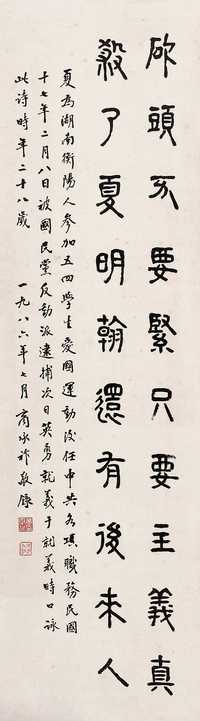 砍頭不要緊只要主義真
殺了夏明翰還有後來人
夏為湖南衡陽人參加五四學生愛國運動後任中共各項職務民國
十七年二月八日被國民黨反動派逮捕次日英勇就義于就義時口詠
此詩時年二十八歲　一九八六年七月商承祚敬錄